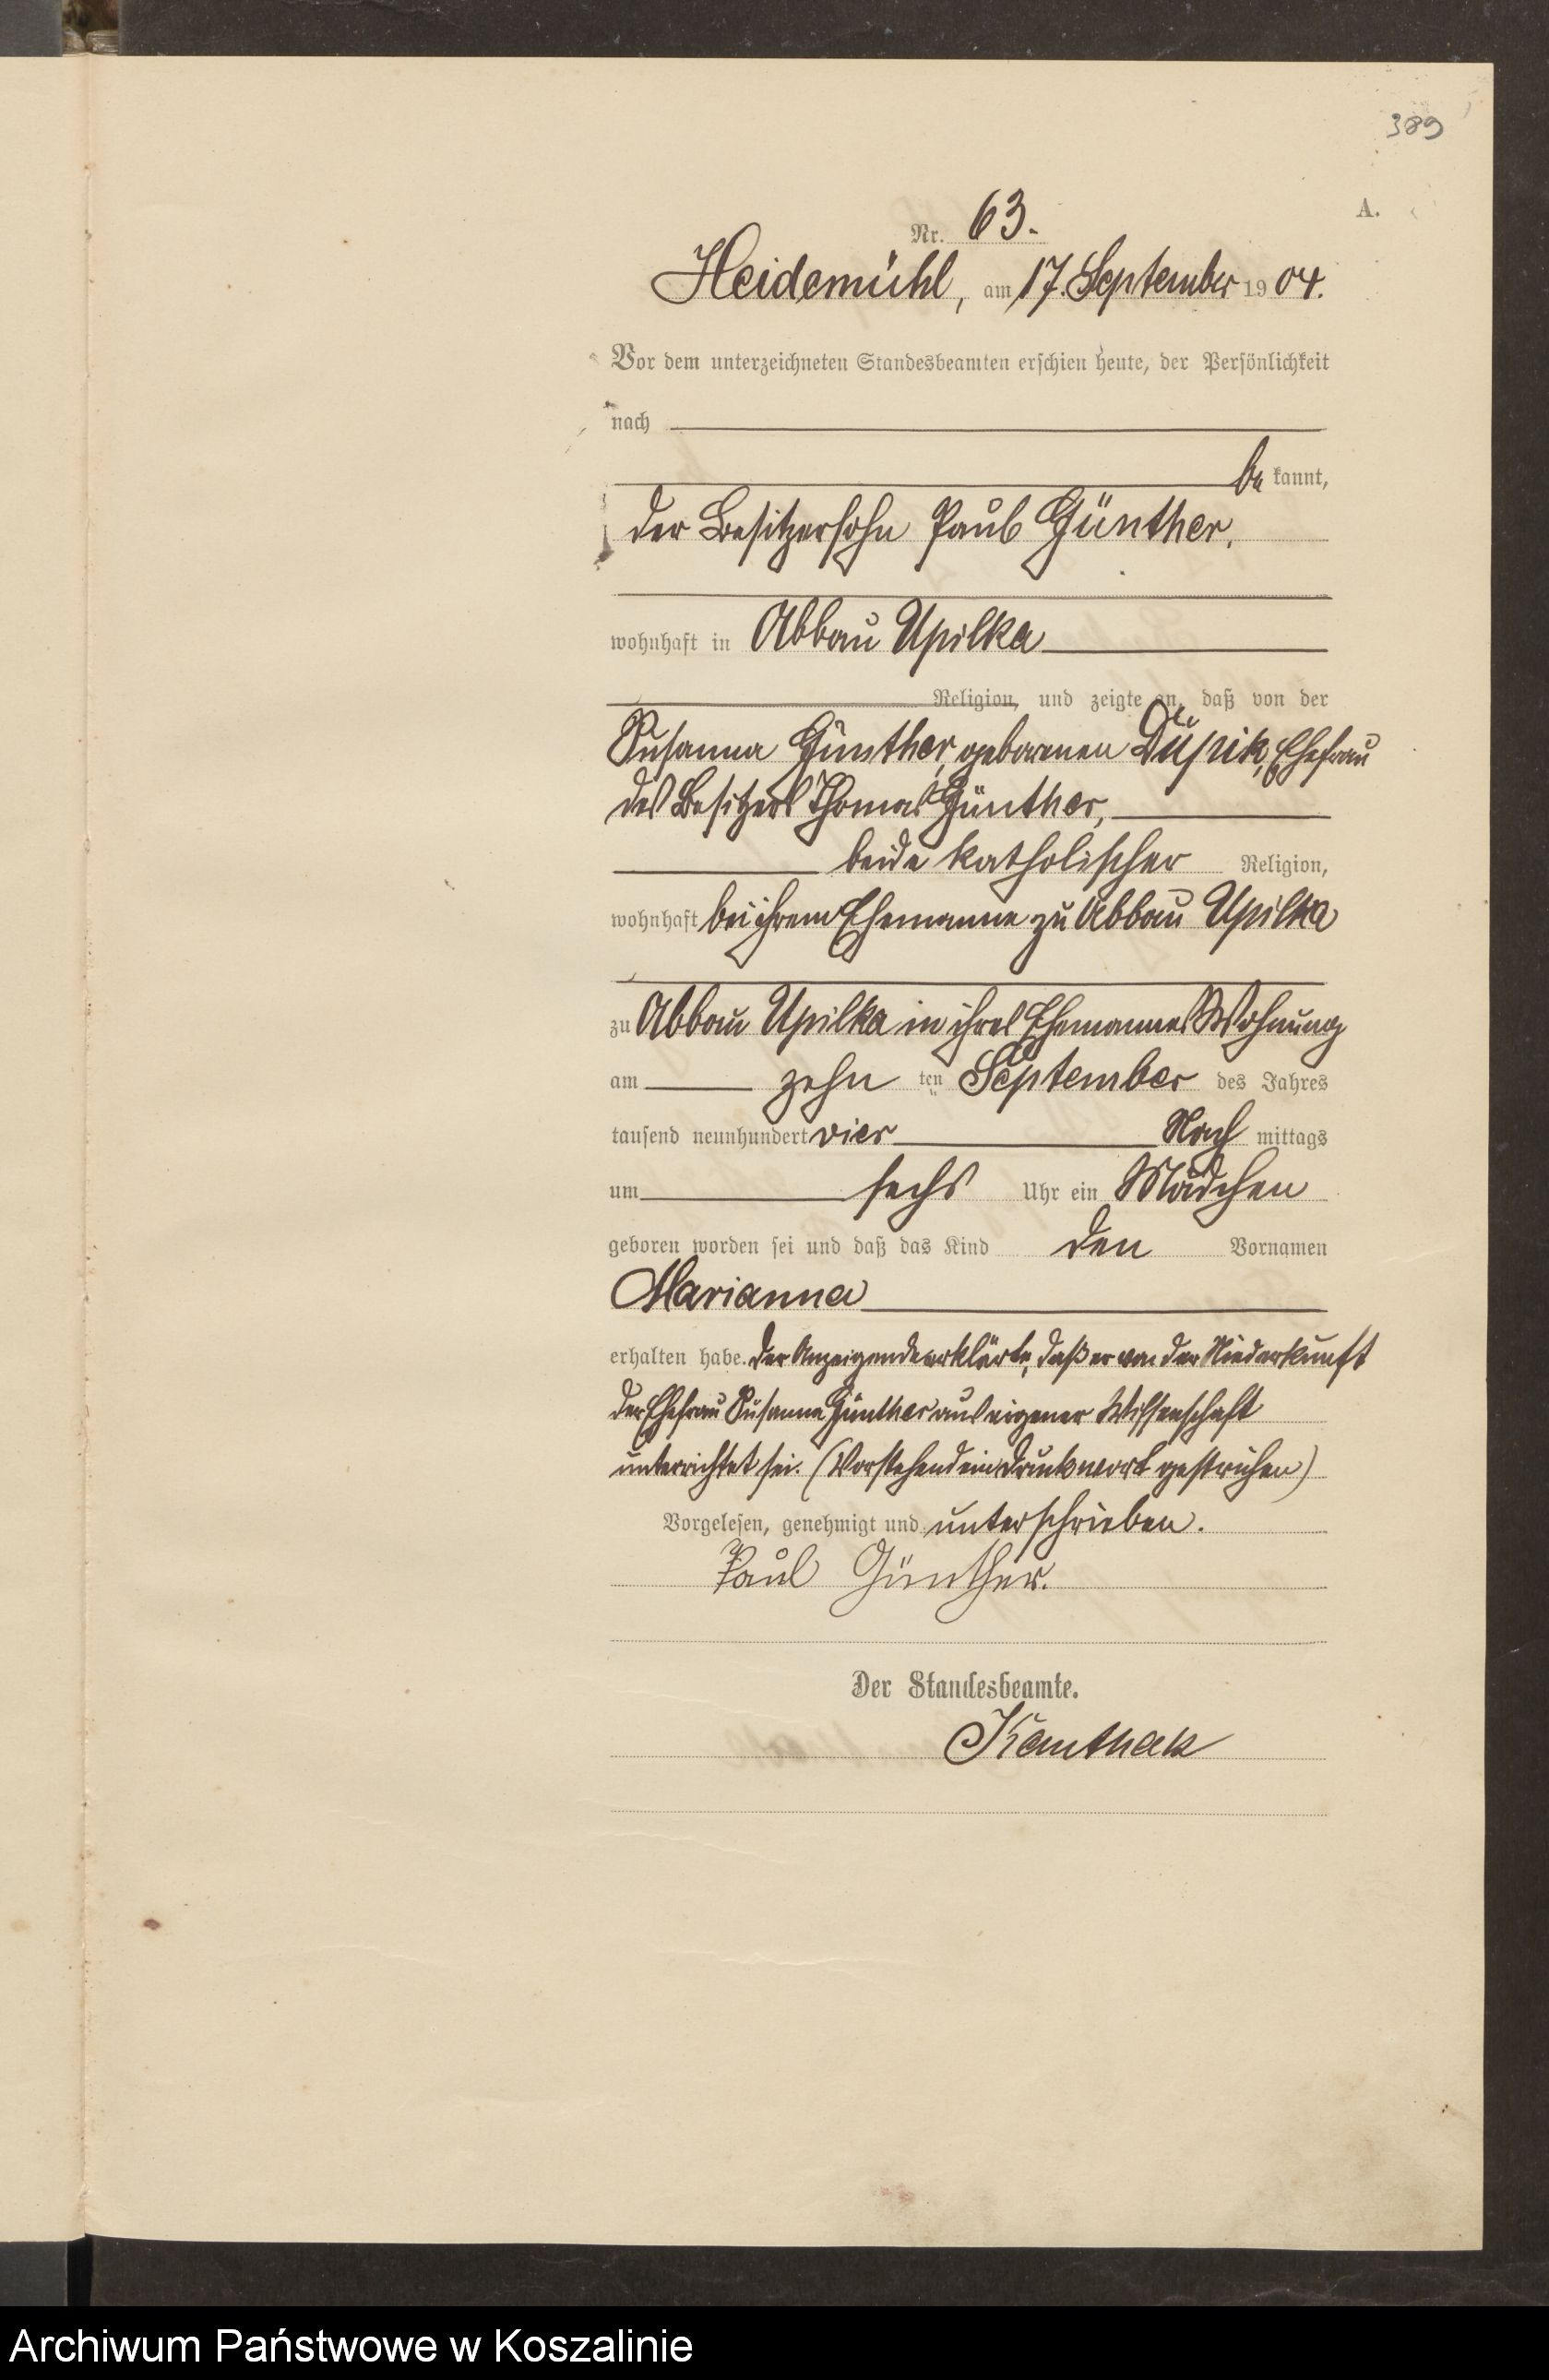 389
A.
Nr. 63.
Heidemühl, am 17. September 1904.
Vor dem unterzeichneten Standesbeamten erschien heute, der Persönlichkeit
nach
be kannt,
der Besitzersohn Paul Günther,
wohnhaft in Abbau Upilka
Religion, und zeigte an, daß von der
Susanna Günther, geborenen Düpik, Ehefrau
des Besitzers Thomas Günther,
beide katholischer Religion,
wohnhaft bei ihrem Ehemanne zu Abbau Upilka
zu Abbau Upilka in ihres Ehemannes Wohnung
am zehn ten September des Jahres
tausend neunhundert vier Nach mittags
um sechs Uhr ein Mädchen
geboren worden sei und daß das Kind den Vornamen
Marianna
erhalten habe. Der Anzeigende erklärte, daß er von der Niederkunft
der Ehefrau Susanna Günther aus eigener Wissenschaft
unterrichtet sei. (Vorstehend ein Druckwort gestrichen)
Vorgelesen, genehmigt und unterschrieben.
Paul Günther.
Der Standesbeamte.
Kanthak
Archiwum Państwowe w Koszalinie